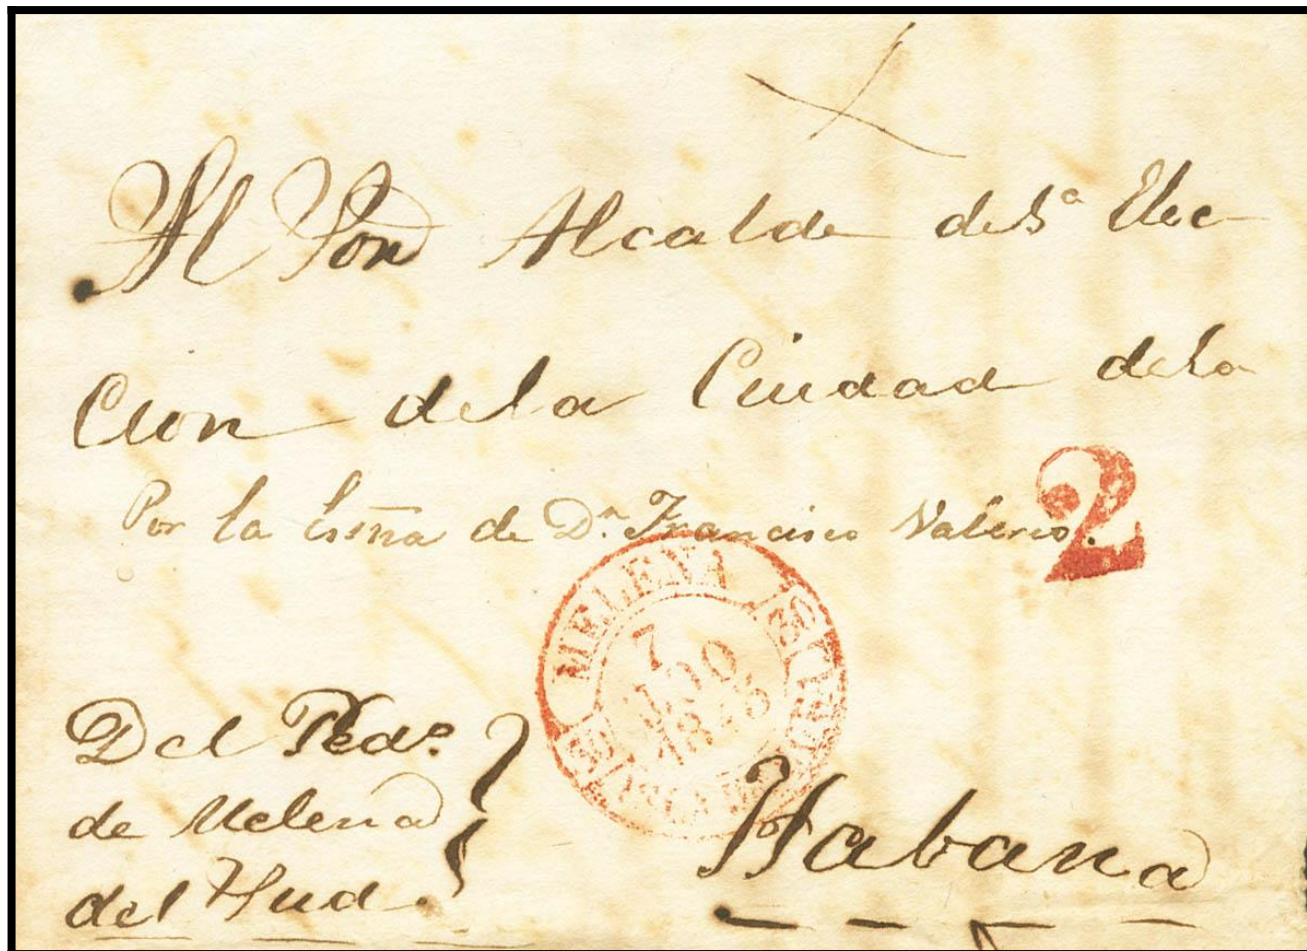 Al Sor Alcalde de 1ª Elec-
cion de la Ciudad de la
Por la Essna de Dn. Francisco Valerio.
2
MELENA
7
1848
Del Pedo.
de Melena
del Sud.
Habana